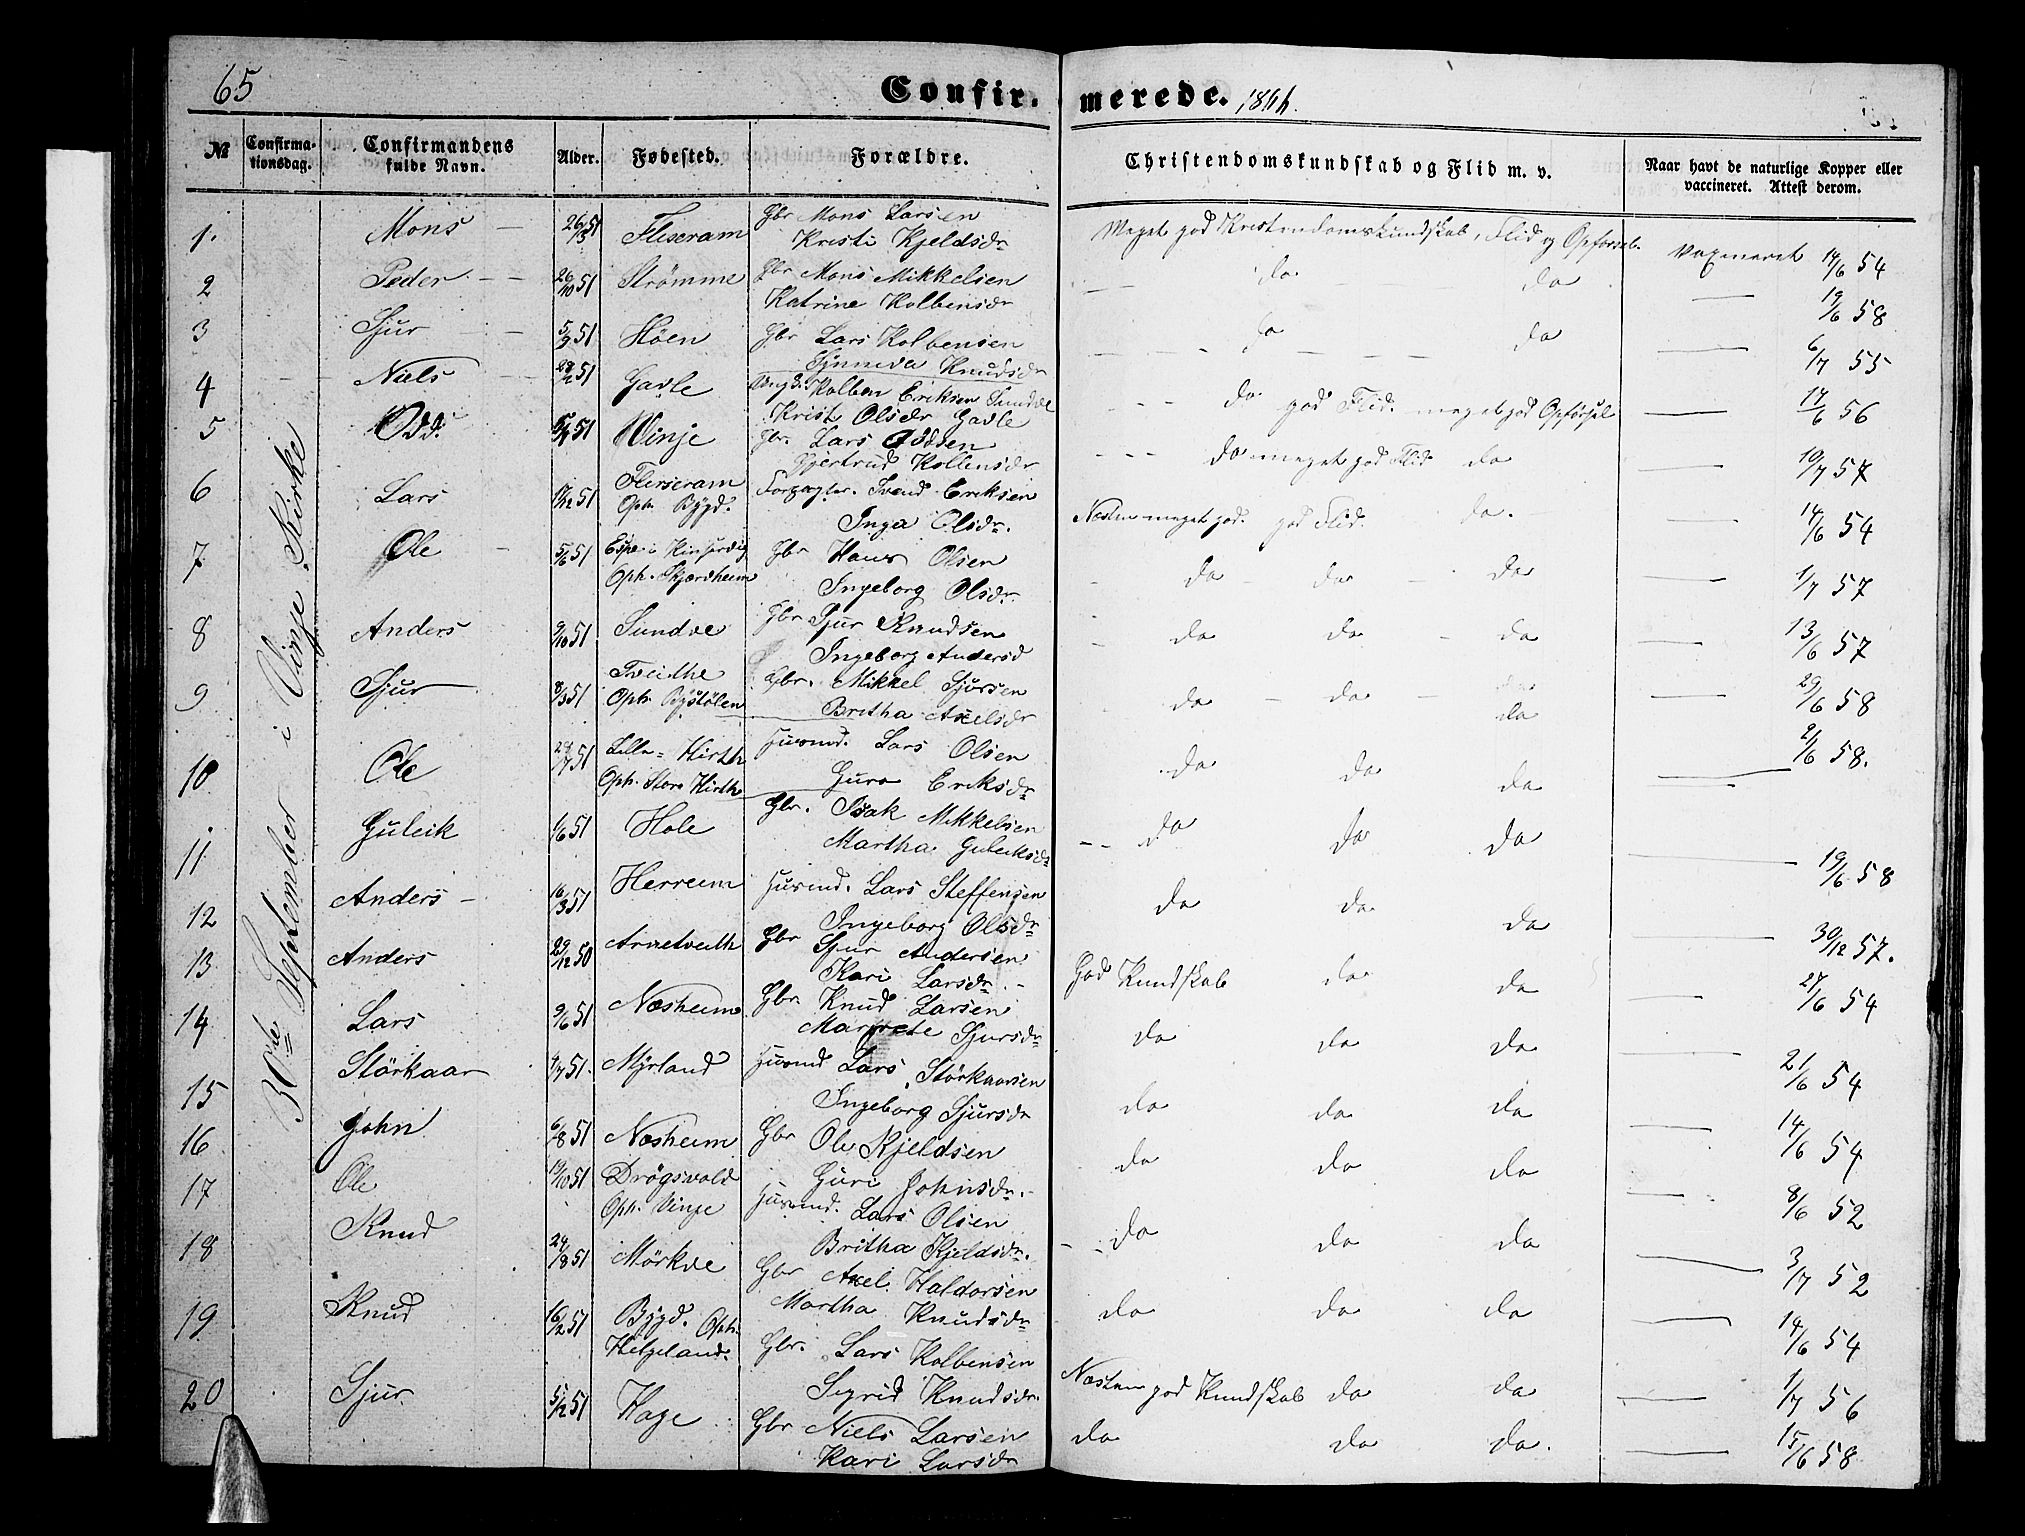 65
Confir- merede. 1866.
No Confirma-tionsdag. Confirmandens fulde Navn. Alder. Fødested. Forældre. Christendomskundskab og Flid m. v. Naar havt de naturlige Kopper eller vaccineret. Attest derom.
30te September i Vinje Kirke
1. Mons 51 Fliseram Gbr Mons Larsen Meget god Kristendomskundskab, Flid og Opførsel Vaxineret 14/6 54
Kristi Kjeldsdr
2 Peder 26/10 51 Strømme Gbr Mons Mikkelsen do do 19/6 58
Katrine Kolbensdr
3 Sjur 51 Höen Gbr Lars Kolbensen do do 6/7 55
Synneva Knudsdr
4 Niels 51 Gavle Ung. Kolben Eriksen Sundve do god Flid. meget god Opførsel 17/6 56
Kristi Olsdr Gavle
5 Odd. 51 Vinje Gbr. Lars Oddsen do meget god Flid do 10/7 57
Gjertrud Kolbensdr
6 Lars 17/12 51 Fliseram Forpagter. Svend Eriksen Næsten meget god. god Flid. do. 14/6 54
Oph. Bygd. Inga Olsdr.
7 Ole 5/6 51 Espe i Kinservig Gbr Hans Olsen do do do 1/7 57
Oph. Skjerdheim Ingeborg Olsdr.
8 Anders 9/10 51 Sundve Gbr Sjur Knudsen do do do 13/6 57
Ingeborg Andersd
9 Sjur 8/3 51 Tveithe Gbr. Mikkel Sjursen do do do 29/6 58
Oph. Bystølen Britha Axelsdr
10 Ole 28/7 51 Lille Hirth Husmd. Lars Olsen do do do 2/6 58.
Oph. Store Hirth Guro Eriksdr
11 Guleik 1/6 51 Hole Gbr. Isak Mikkelsen do do do 19/6 58
Martha Guleiksdr
12 Anders 16/3 51 Herreim Husmd. Lars Steffensen do do do 30/12 57.
Ingeborg Olsdr
13 Anders 29/12 50 Arnetveith Gbr Sjur Andersen God Kundskab do do 27/6 54
Kari Larsdr.
14 Lars 9/6 51 Næsheim Gbr. Knud Larsen do do do 21/6 54
Margrete Sjursdr
15 Störkaar 9/7 51. Myrland Husmd Lars Störkaarsen do do do 14/6 54
Ingeborg Sjursdr
16 John 6/8 51 Næsheim Gbr Ole Kjeldsen do do do 8/6 52
Guri Johnsdr.
17 Ole 19/10 51 Drögsvold Husmd. Lars Olsen do do do 3/7 52
Oph. Vinje Britha Kjeldsdr.
18 Knud 24/8 51 Mörkve Gbr Axel Haldorsen do do do 14/6 54
Martha Knudsdr
19 Knud 16/2 51 Bygd. Oph. Gbr. Lars Kolbensen Næsten god Kundskab do do 1/7 56
Helgeland. Sigrid Knudsdr.
20 Sjur 5/12 51 Hage Gbr Niels Larsen do do do. 15/6 58
Kari Larsdr